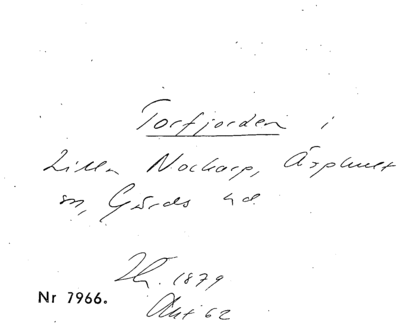 Torfjorden i
Lilla Nockarp, Äsphult
sn, Gärds hd
1879
Nr 7966.
Okt 62